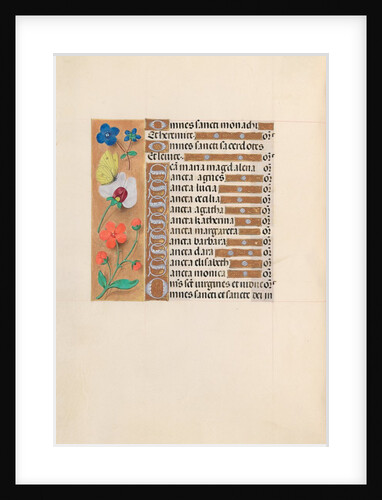 Omnes sancti monachi
Et heremite or̃
Omnes sancti sacerdotes
Et leuite or̃
Scã maria magdalena
Sancta agnes or̃
Sancta lucia or̃
Sancta cecilia or̃
Sancta agatha or̃
Sancta katherina or̃
Sancta margareta or̃
Sancta barbara or̃
Sancta clara or̃
Sancta elisabeth or̃
Sancta monica or̃
Om̃s scẽ virgines et vidue or̃
Omnes sancti et sancte dei in